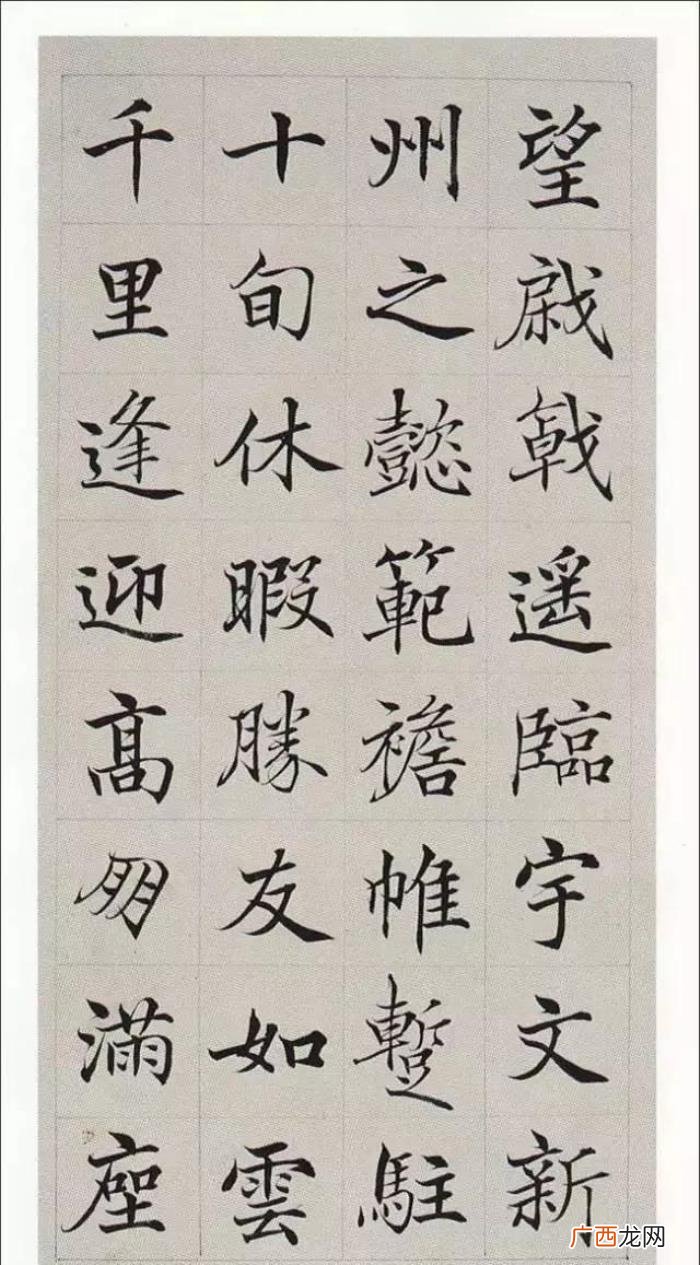 望戚戟遥臨宇文新
州之懿範襜帷蹔駐
十旬休暇勝友如雲
千里逢迎髙朋滿座
广西龙网